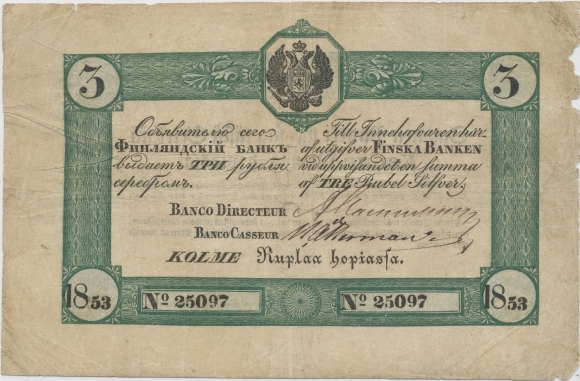 3
3
Объявителю сего
Финляндскій Банкъ
выдаетъ ТРИ рубля
серебромъ.
Till Innehafvaren häraf
utgifver FINSKA BANKEN
vid uppvisandet en summa
af TRE Rubel Silfver.
BANCO DIRECTEUR
BANCO CASSEUR
KOLME Ruplaa hopiassa.
1853
1853
No 25097
No 25097